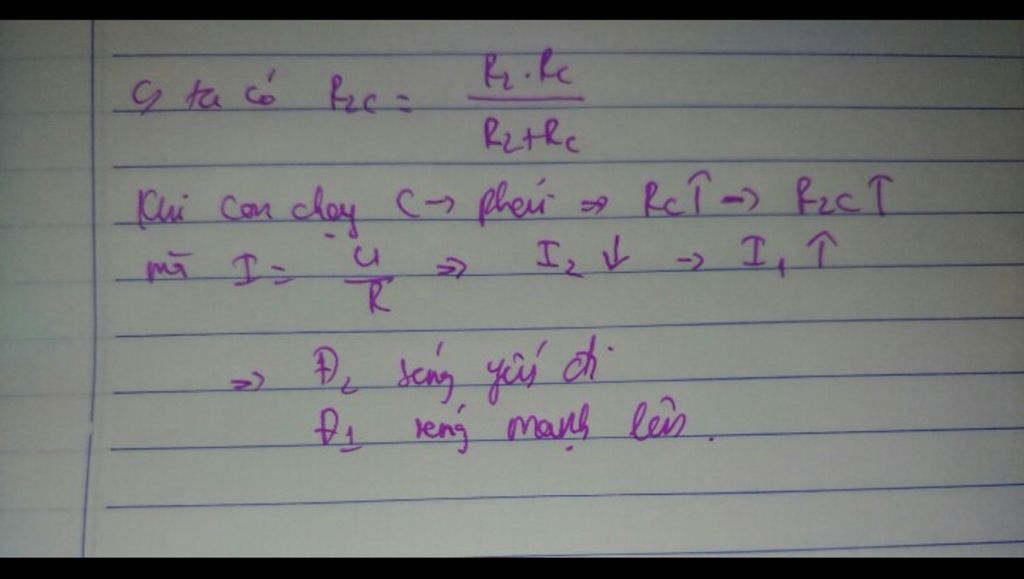 ↪ ta có R2C = R2.RC / R2+RC
Khi con chạy C → phải ⇒ RC↑ → R2C↑
mà I = U / R ⇒ I2 ↓ → I1 ↑
⇒ Đ2 sáng yếu đi
Đ1 sáng mạnh lên.